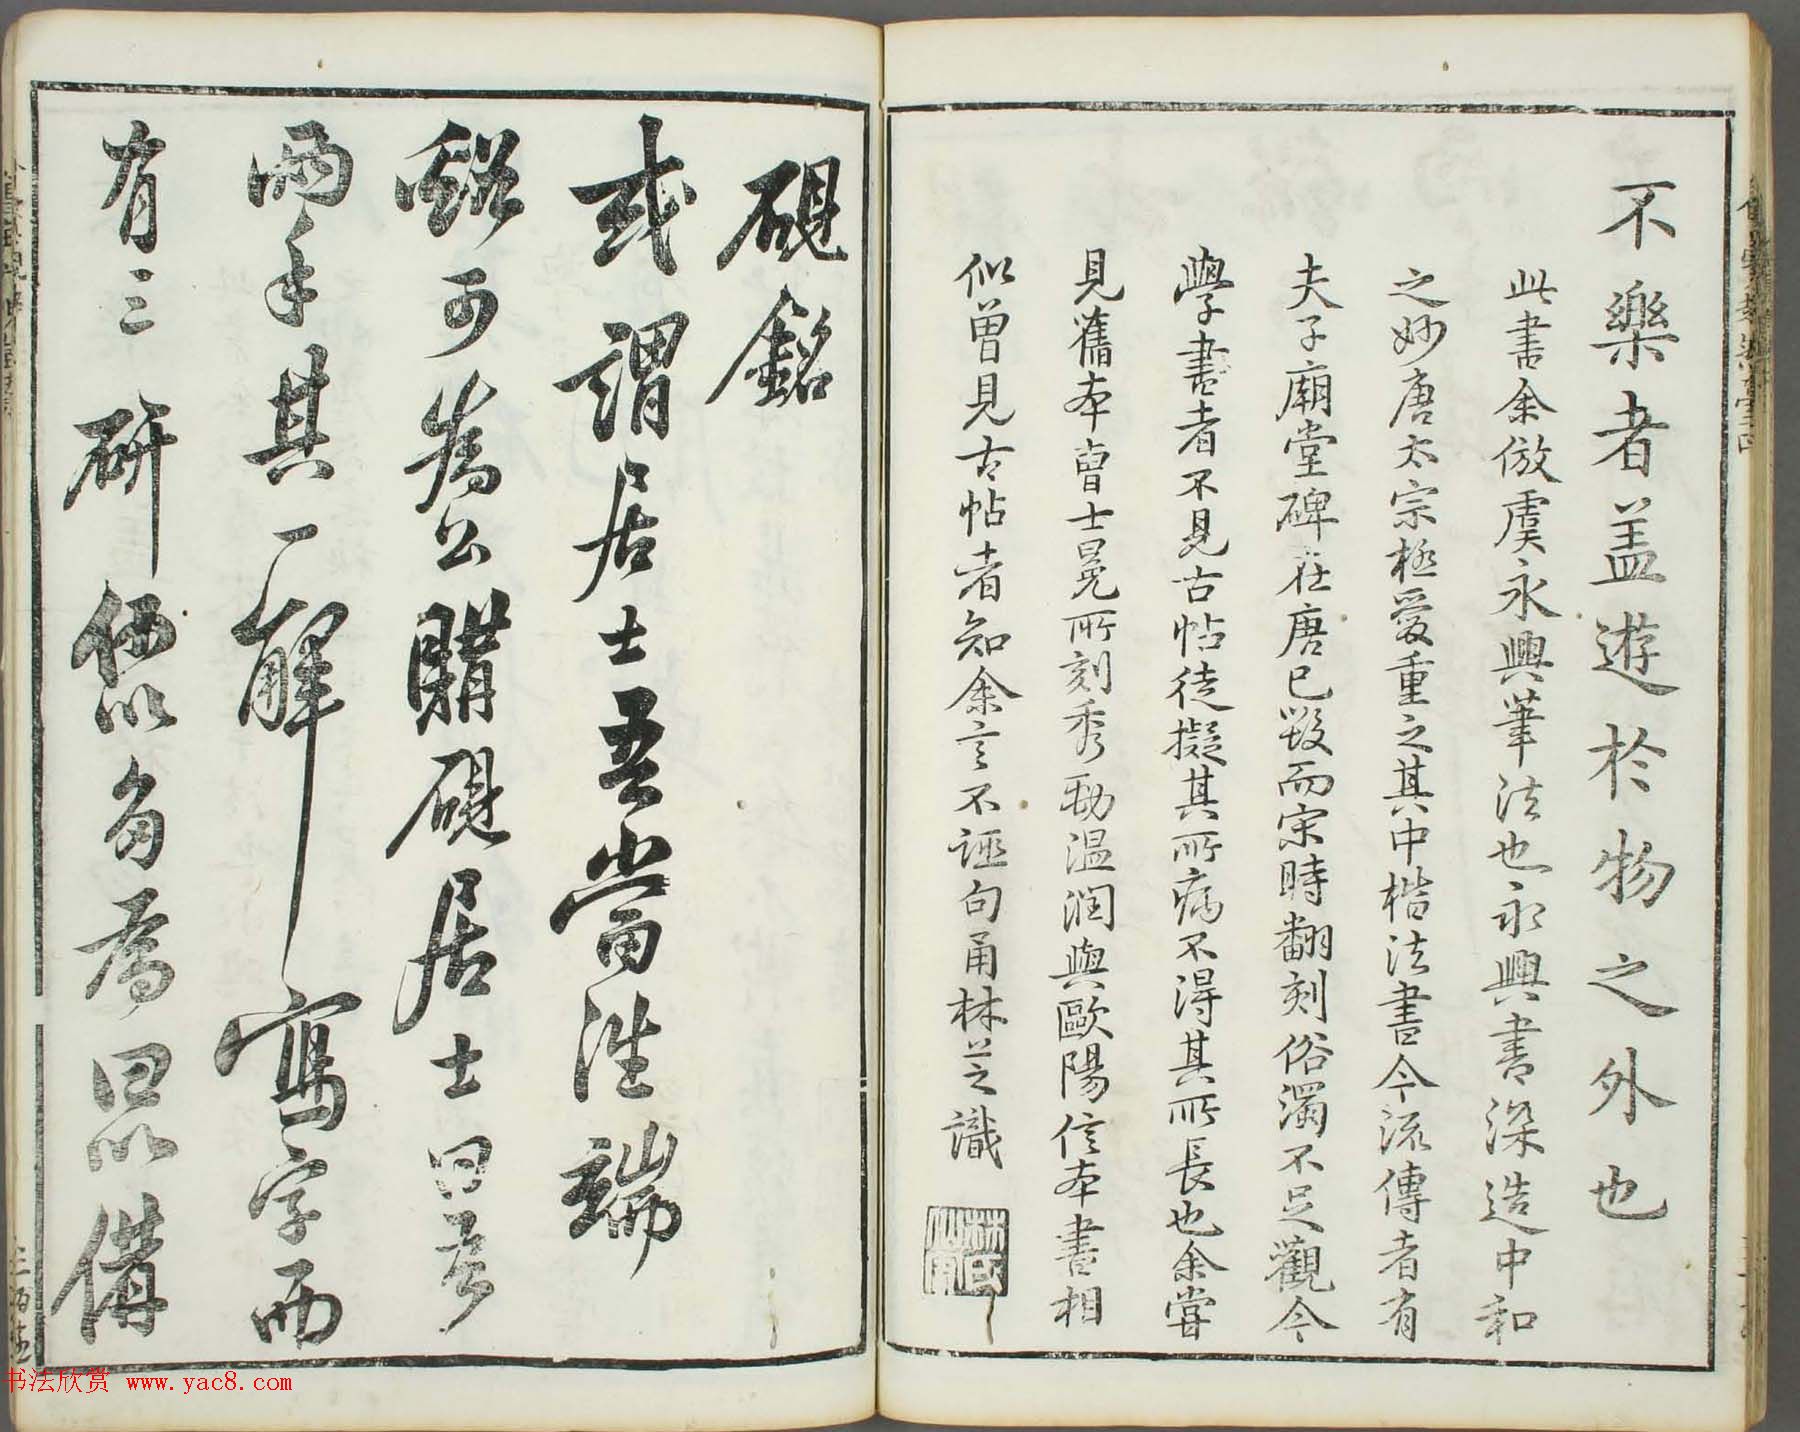 不樂者盖遊於物之外也
此書余倣虞永興筆法也永興書深造中和
之妙唐太宗極愛重之其中楷法書今流傳者有
夫子廟堂碑在唐已毀而宋時翻刻俗濁不足觀今
學書者不見古帖徒擬其所病不得其所長也余嘗
見舊本曺士冕所刻秀勁温潤與歐陽信本書相
似曽見古帖者知余言不誣句甬林芝識
硯銘
或謂居士吾當往端
谿可爲公購硯居士曰吾
兩手其一解寫字而
有三硯何以多爲曰以備
书法欣赏 www.yac8.com